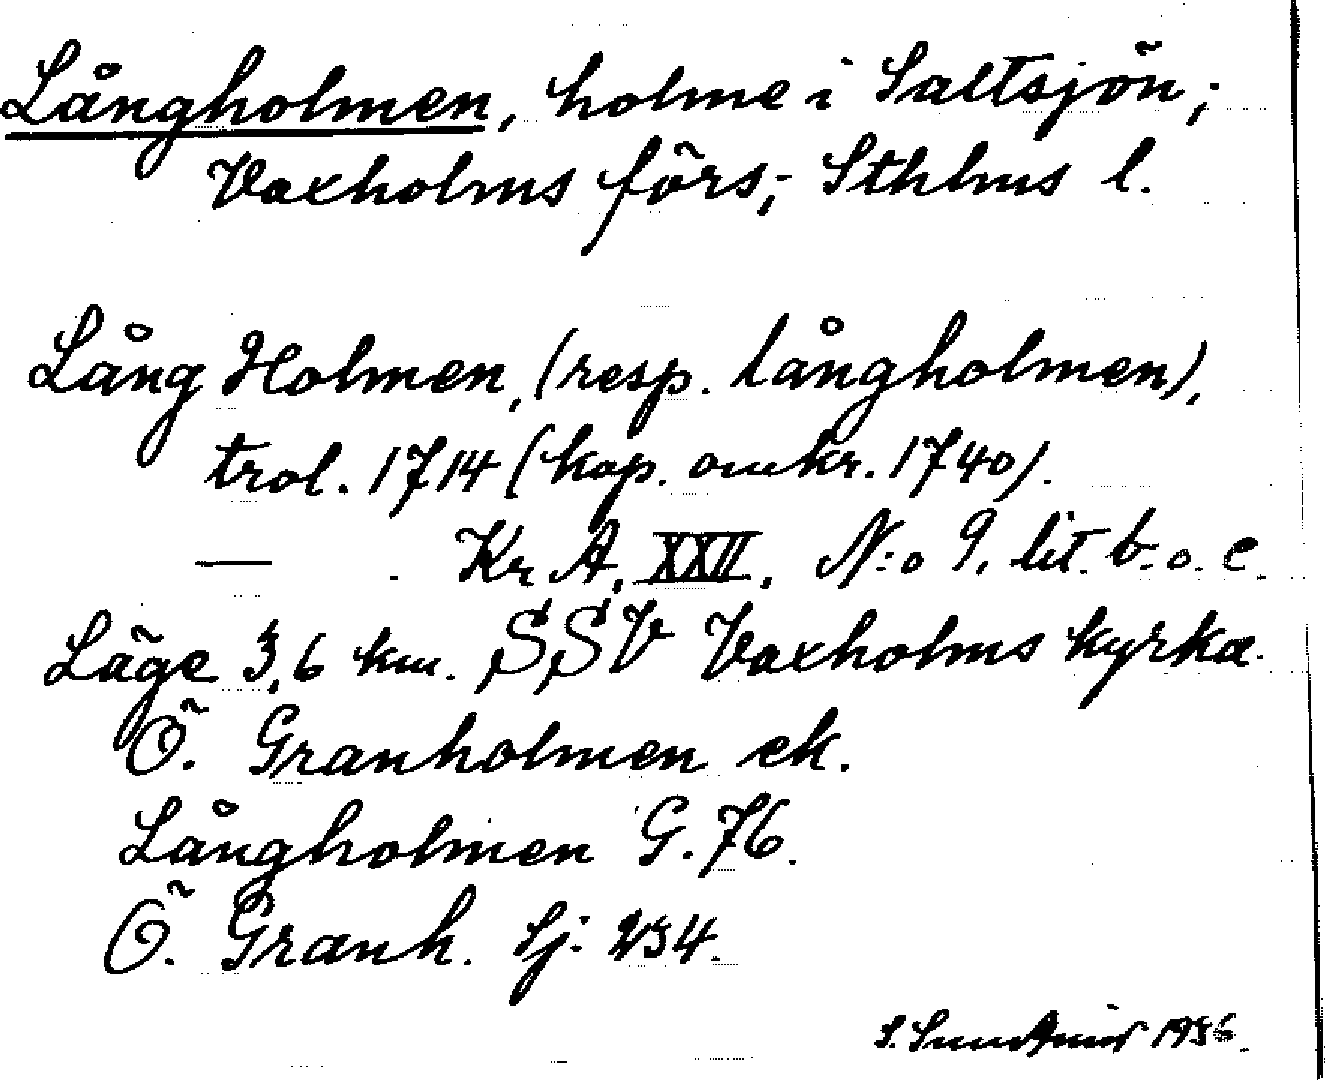 Långholmen, holme i Saltsjön;
Vaxholms förs; Sthlms l.
Lång Holmen, (resp. Långholmen),
trol. 1714 (kop. omkr. 1740).
— Kr A. XXII. N:o 9. lit. b. o. c.
Läge 3,6 km. SSV Vaxholms kyrka.
Ö. Granholmen ek.
Långholmen G. 76.
Ö. Granh. Sj: 234.
S. 1936.